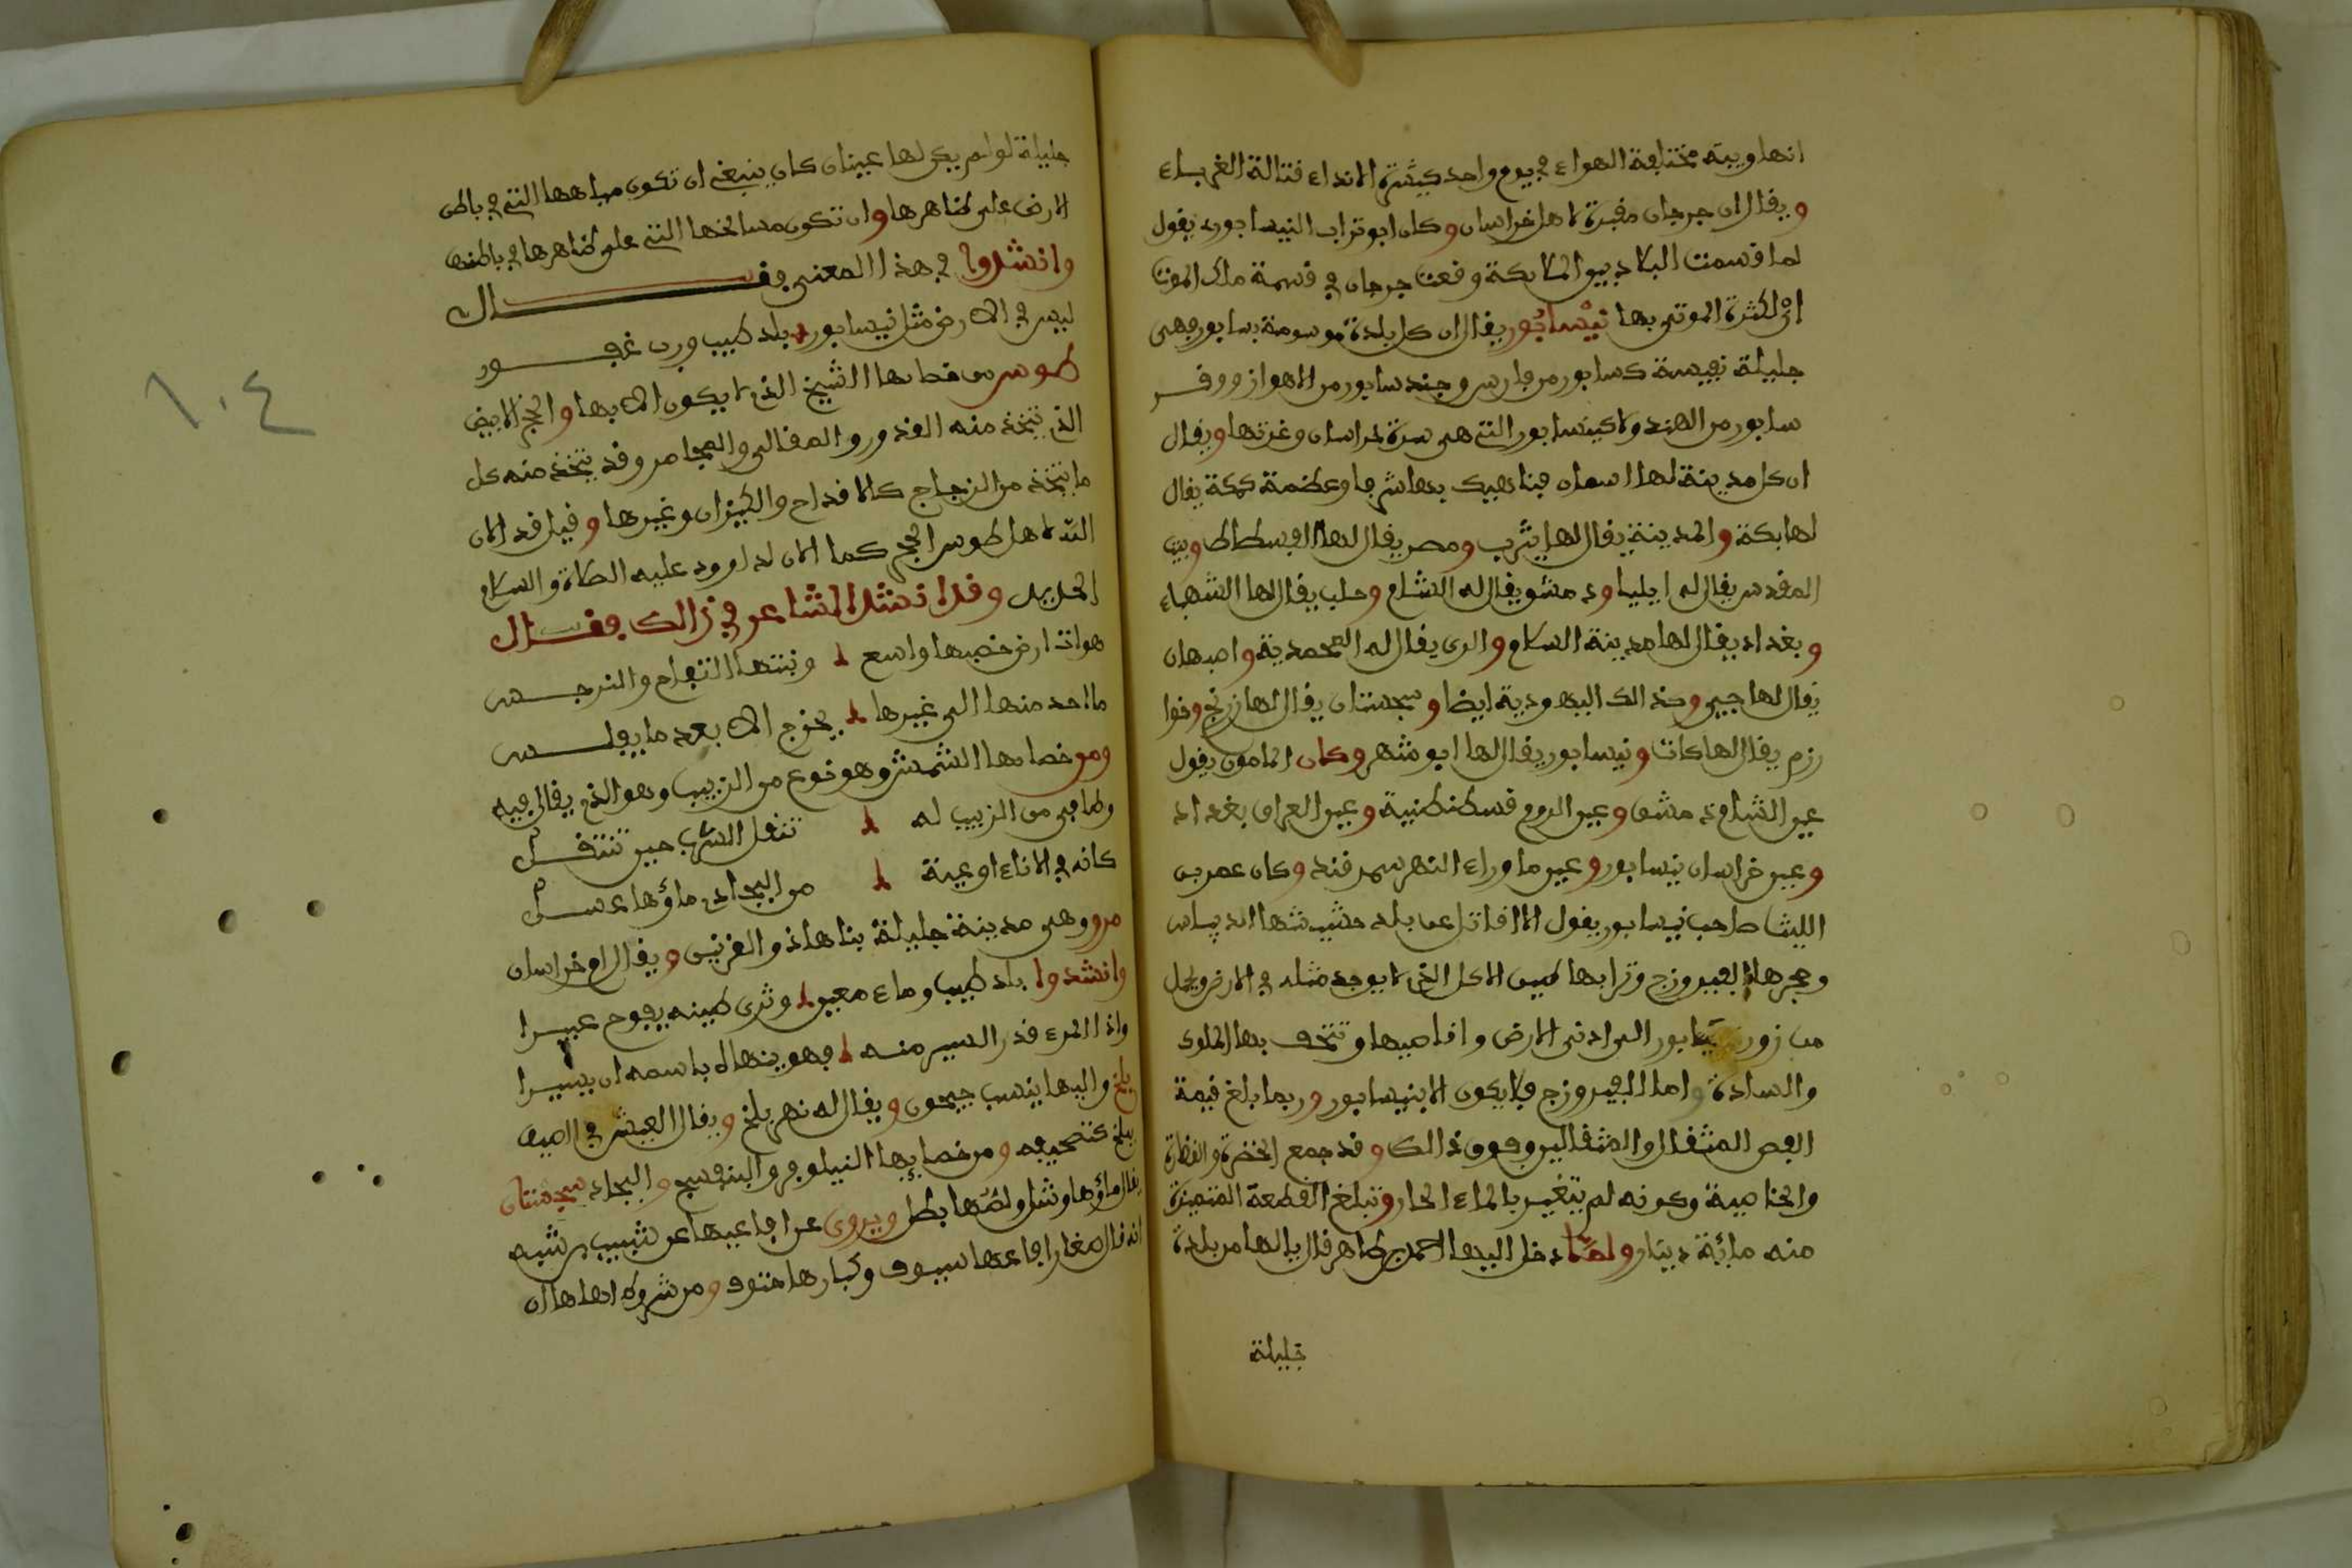 انها وبية مختلفة الهواء في يوم واحد كثيرة الانداء قتالة الغرباء
ويقال ان جرجان مقبرة لاهل خراسان وكان ابو تراب النيسابوري يقول
لما قسمت البلاد بين الملايكة وقعت جرجان في قسمة ملك الموت
اي لكثرة الموتى بها نيسابور يقال ان كل بلدة موسومة بسابور فهى
جليلة نفيسة كسابور من فارس وجندسابور من الاهواز ووفــر
سابور من الهند ولا كنيسابور التى هى سرة خراسان وغرتها ويقال
ان كل مدينة لها اسمان فناهيك بها شرفا وعظمة كمكة يقال
لها بكة والمدينة يقال لها يثرب ومصر يقال لها الفسطاط وبيت
المقدس يقال له ايليا ودمشق يقال له الشام وحلب يقال لها الشهباء
وبغداد يقال لها مدينة السلام والرى يقال له المحمدية واصبهان
يقال لها جيى وكذالك اليهودية ايضا وسجستان يقال لها زرنج وخوا
رزم يقال لها كات ونيسابور يقال لها ابو شهر وكان المامون يقول
عين الشام دمشق وعين الروم قسطنطنية وعين العراق بغداد
وعين خراسان نيسابور وعين ما وراء النهر سمرقند وكان عمر بن
الليث صاحب نيسابور يقول الا اقاتل عن بلد حشيشها الديباس
وحجرها الفيروزج وترابها طين الاكل الذى لا يوجد مثله في الارض ويحمل
من زوزن نيسابور الى ادنى الارض واقاصيها وتتحف بها الملوك
والسادة واما الفيروزج فلا يكون الا بنيسابور وربما بلغ قيمة
الفص المثقال والمثقالين وفوق ذالك وقد جمع الخضرة والنظارة
والخاصية وكونه لم يتغير بالماء الحار وتبلغ القطعة المتميزة
منه مائة دينار ولما دخل اليها احمد بن طاهر قال يا لها من بلدة
جليلة
جليلة لو لم يكن لها عيبان كان ينبغى ان تكون مياهها التى في باطن
الارض على ظاهرها وان تكون مسالحها التى على ظاهرها في باطنها
وانشدوا في هذا المعنى فقــــــال
ليس في الارض مثل نيسابور بلد طيب ورب غفـــور
طوس من خصايصها الشيح الذى لا يكون الا بها والحجر الابيض
الذى تتخذ منه القدور والمقالى والمجامر وقد يتخذ منه كل
ما يتخذ من الزجاج كالاقداح والكيزان وغيرها وقيل قد الان
الله لاهل طوس الحجر كما الان لداوود عليه الصلاة والسلام
الحديد وقد انشد الشاعر في ذالك فقــال
هواة ارض خصبها واسع ونبتها التفاح والنرجــس
ما احد منها الى غيرها يخرج الا بعد ما يفلــس
ومن خصايصها الشمش وهو نوع من الزبيب وهو الذى يقال فيه
وطايفى من الزبيب له تنقل الشرب حين تنتقــل
كانه في الاناء اوعية من البجادى ماؤها عســل
مرو وهى مدينة جليلة بناها ذو القرنين ويقال ام خراسان
وانشدوا بلد طيب وماء معين وثرى طينه يفوح عبيــرا
واذا المرء قدر السير منه فهو ينهاه باسمه ان يسيــرا
بلخ واليها ينسب جيحون ويقال له نهر بلخ ويقال العيش في الصيف
ببلخ كتصحيفه ومن خصايصها النيلوفر والبنفسج والبجاد سجستان
يقال ماؤها وشل ولصها بطل ويروى عن افاعيها عن شبيب بن شيبه
انه قال صغار افاعها سيوف وكبارها حتوف ومن شروط اهلها ان
١٠٤